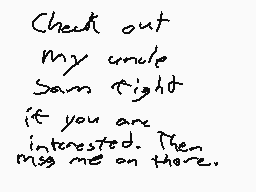 Check out
my uncle
Sam right
if you are
interested. Then
msg me on there.